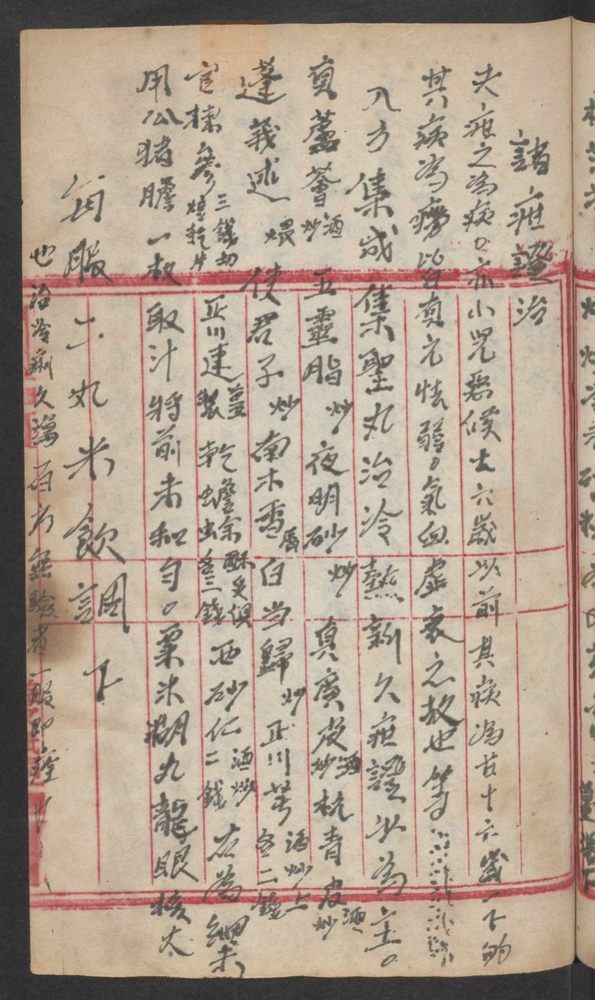 諸疳證治
夫疳之為病。亦小兒惡候十六歲以前其病為甘十六歲以下的
其病為癆皆真元怯弱。氣血虛衰之故也
入方集成集聖丸治冷熱新久疳證此為主。
真蘆薈酒炒五靈脂炒夜明砂炒真廣皮酒炒杭青皮酒炒
蓬莪述煨使君子炒南木香白当歸炒正川芎酒炒各二錢
官揀參三錢切焙乾片正川連薑製乾蟾蜍酥炙俱各三錢西砂仁酒炒二錢右為細末
用公猪膽一枚取汁將前末和勻。粟米糊丸龍眼核大
每服二丸米飲調下
也治冷痢久瀉百方無驗者一服即瘥